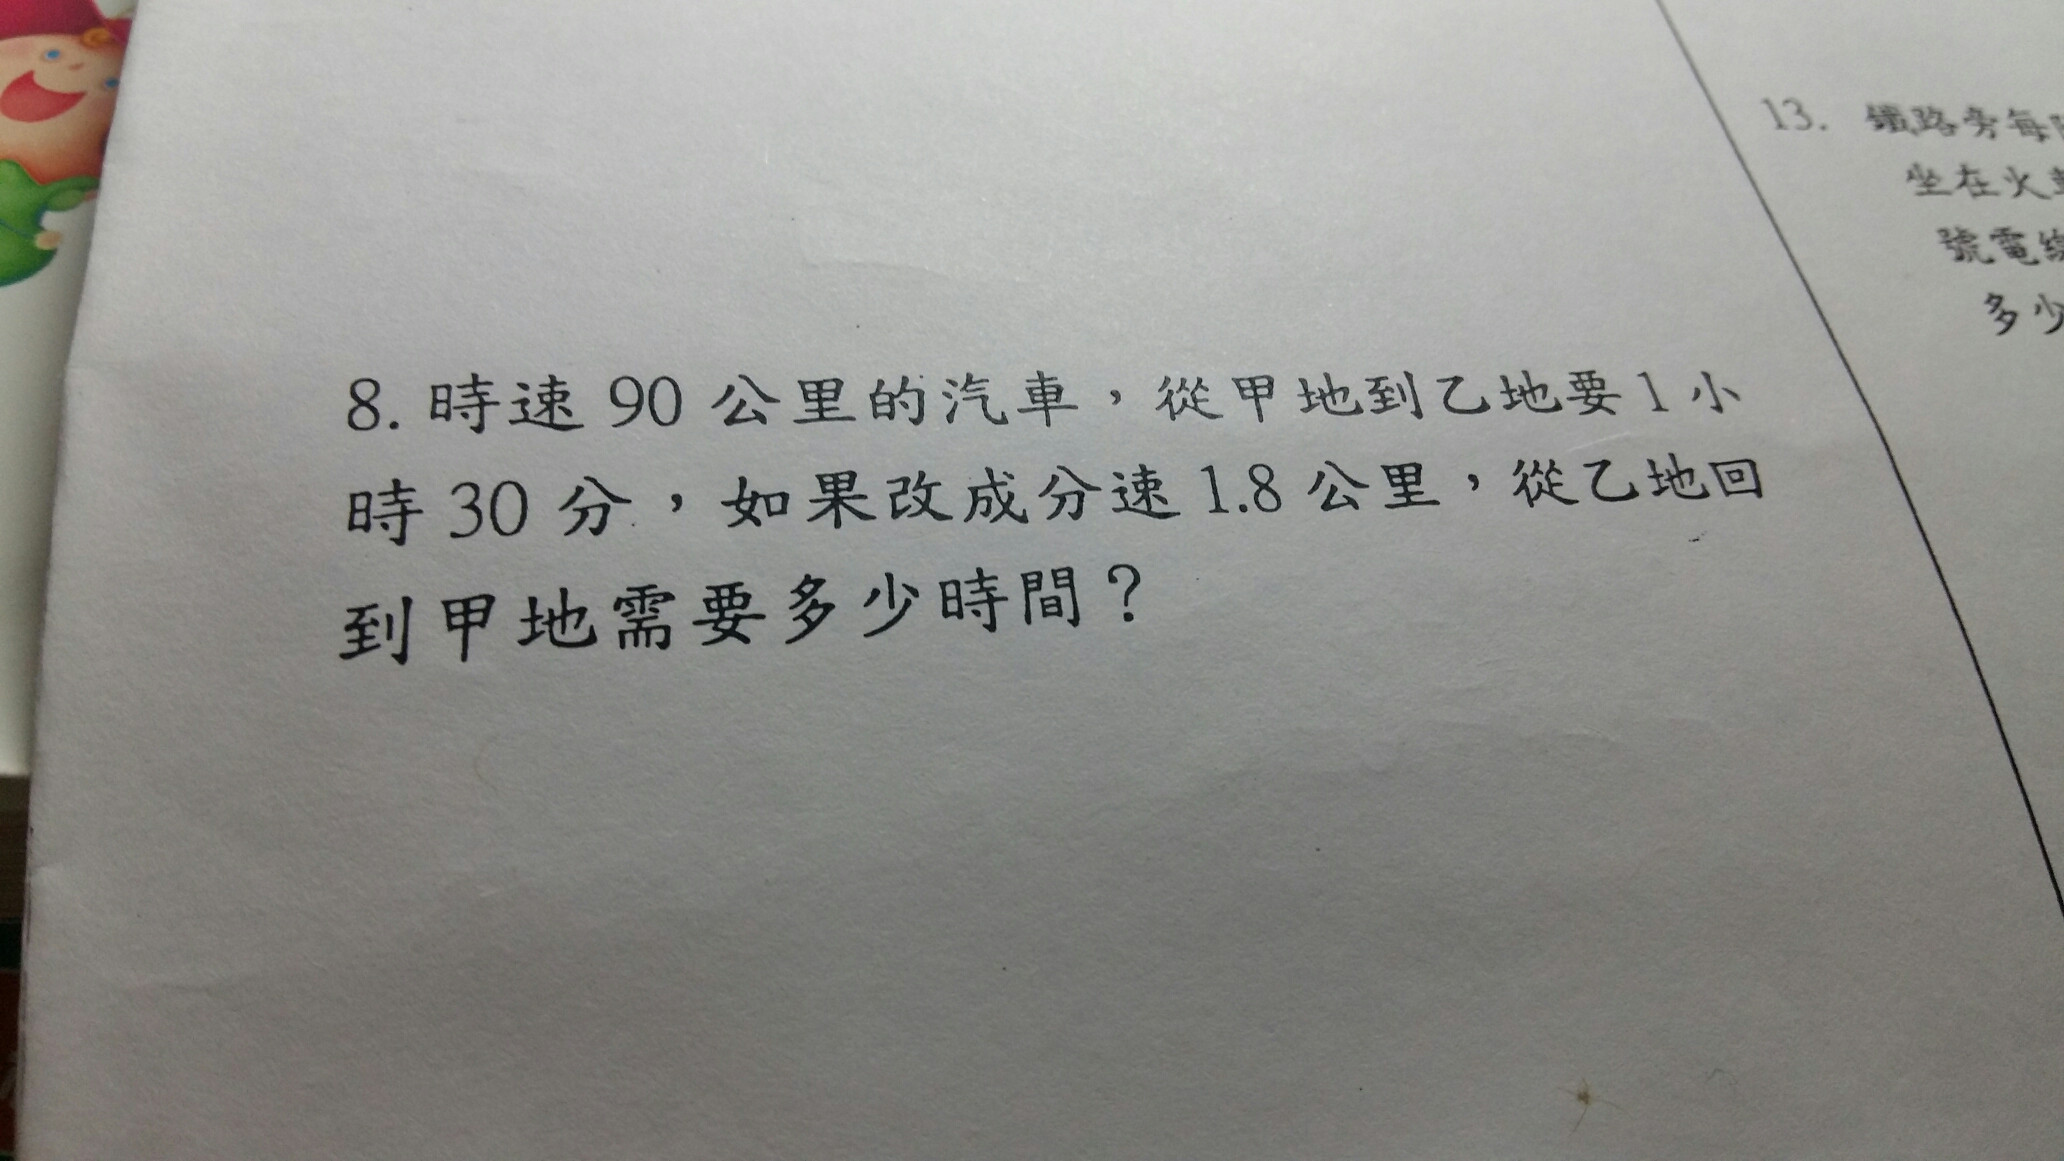 8. 時速 90 公里的汽車，從甲地到乙地要 1 小
時 30 分，如果改成分速 1.8 公里，從乙地回
到甲地需要多少時間？
13. 鐵路旁每
坐在火車
號電線
多少